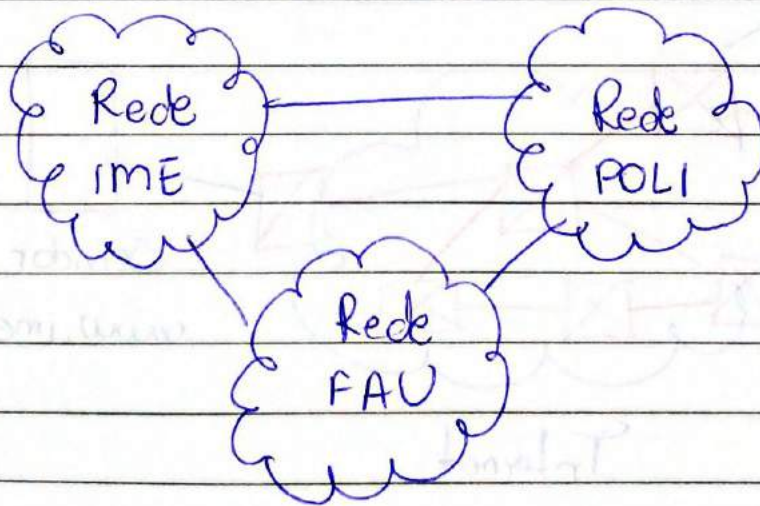 Rede
IME
Rede
POLI
Rede
FAU